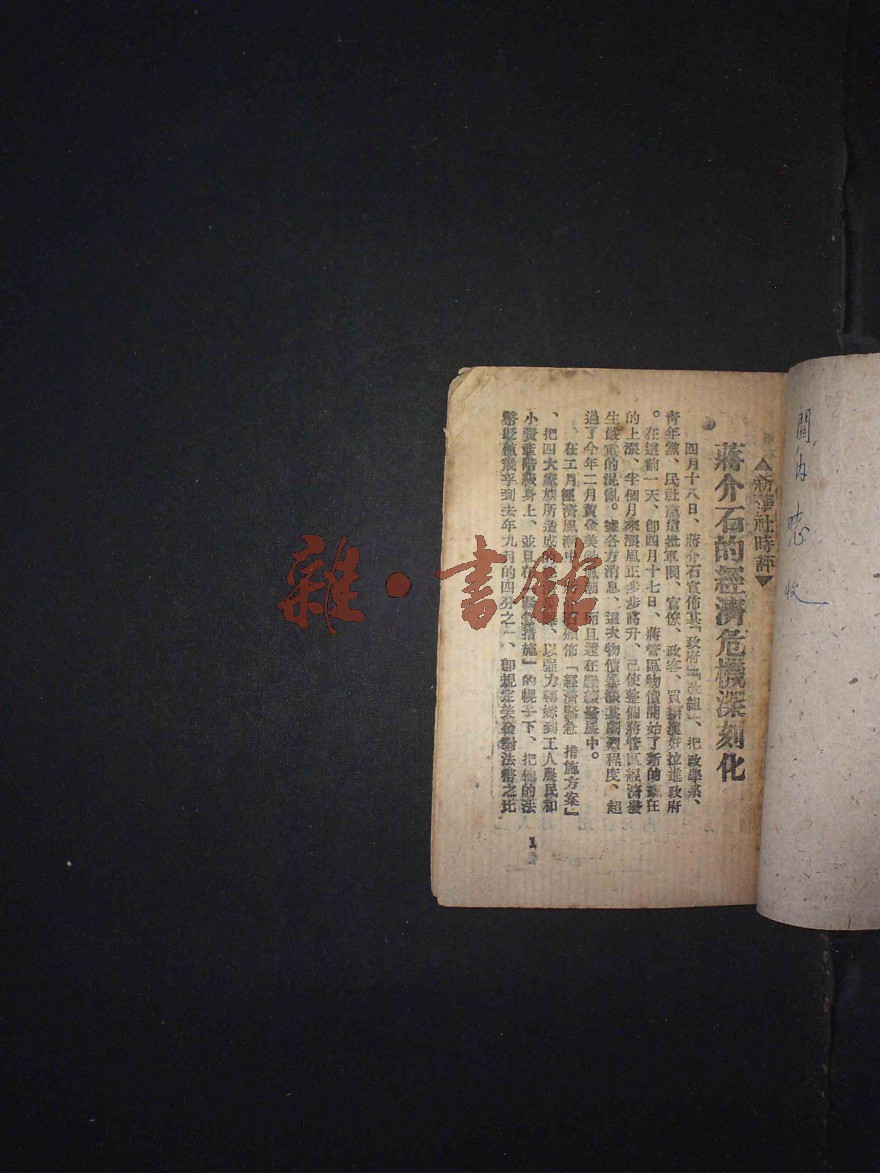 △新華社時評▽
蔣介石的經濟危機深刻化
四月十八日、蔣介石宣佈其「政府」「改組」、把政學系、
青年黨、民社黨這批軍閥、官僚、政客、買辦漢奸拉進政府
。在這前一天、即四月十七日、蔣管區物價開始了新的瘋狂
的上漲、半個月來漲風正步步高升、已使整個蔣管區經濟發
生嚴重的混亂。據各方消息、這次物價暴漲其劇烈程度、超
過了今年二月黃金美鈔風潮、而且還在繼續發展中。
、在二月經濟風潮中、頒佈「經濟緊急措施方案」
、把四大家族所造成的、以強力轉嫁到工人農民和
小資產階級身上、並且在「緊急措施」的幌子下、把他的法
幣貶值幾乎到去年九月的四分之一、即規定美金對法幣之比
1
關內
收
雜·書館